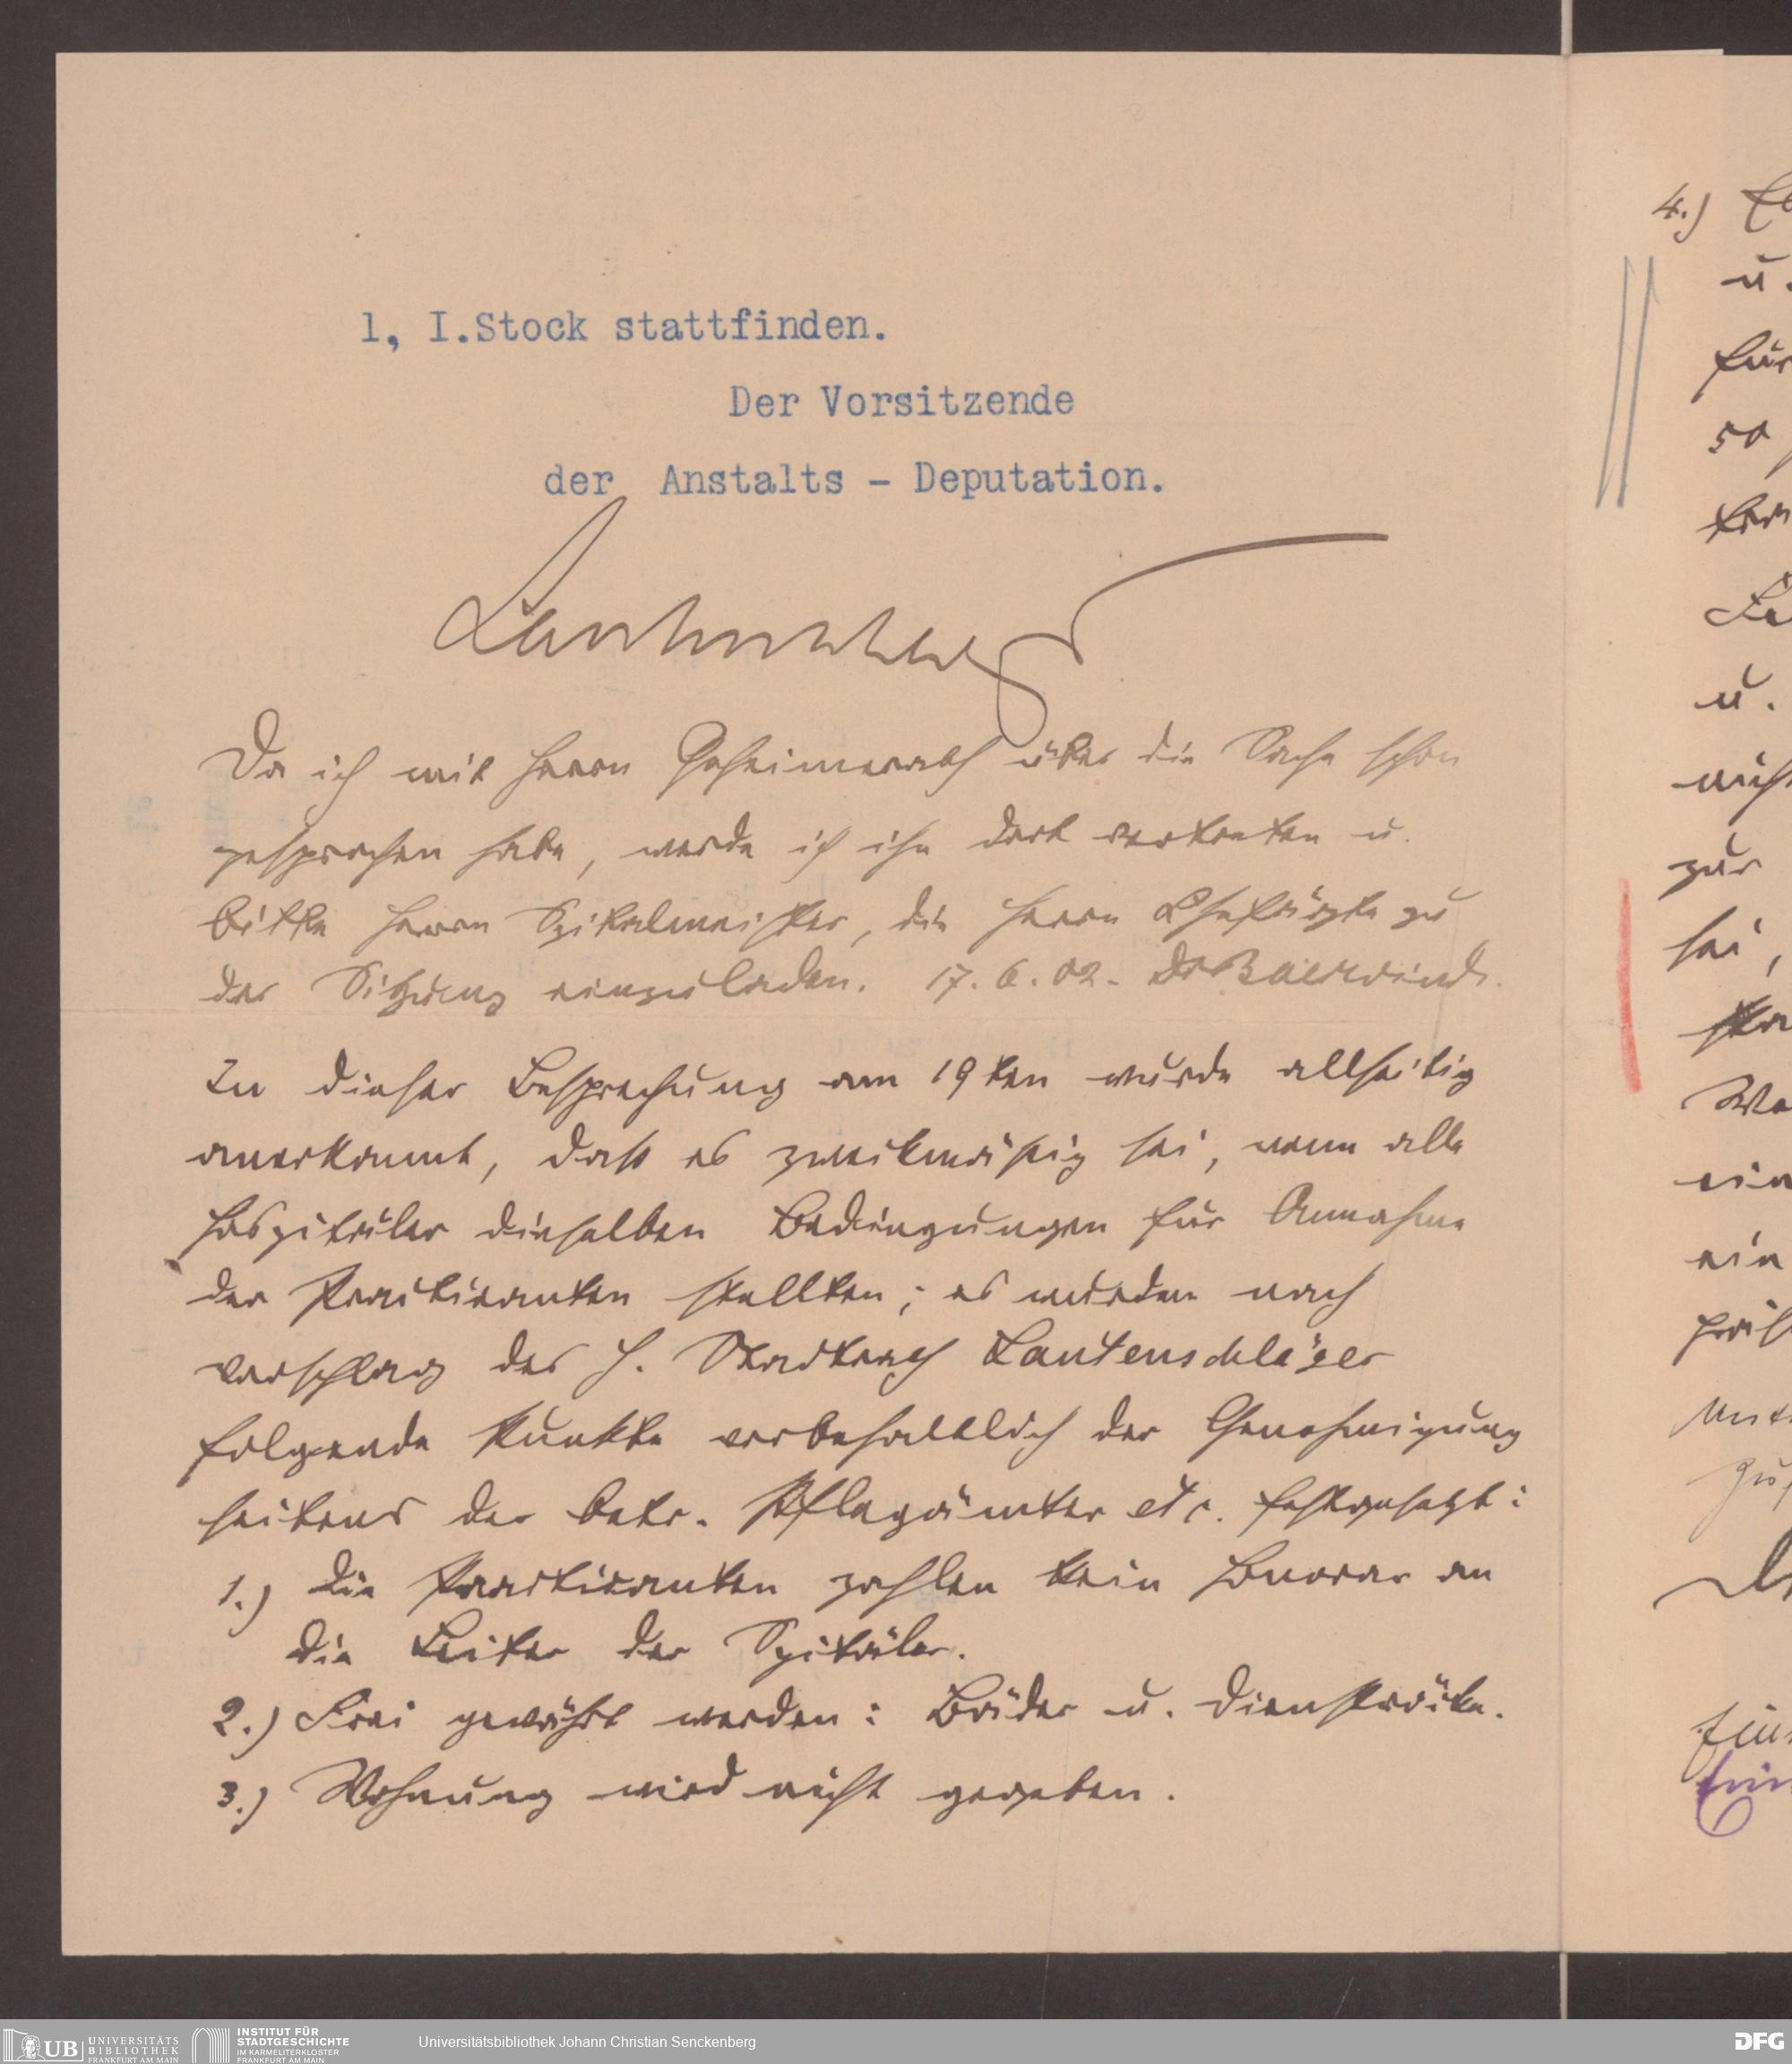 1, I.Stock stattfinden.
Der Vorsitzende
der Anstalts - Deputation.
Lautenschläger
Da ich mit Herrn Geheimerath über die Sache schon
gesprochen habe, werde ich ihn dort vertreten u.
bitte Herrn Spitalmeister, die Herrn Chefärzte zu
der Sitzung einzuladen. 17.6.02. Dr Baerwindt.
In dieser Besprechung am 19ten wurde allseitig
anerkannt, daß es zweckmäßig sei, wenn alle
Hospitäler dieselben Bedingungen für Annahme
der Practicanten stellten; es wurden nach
Vorschlag des H. Stadtrath Lautenschläger
folgende Punkte vorbehaltlich der Genehmigung
seitens der betr. Pflegämter etc. festgesetzt:
1.) Die Practicanten zahlen kein Honorar an
die Leiter der Spitäler.
2.) Frei gewährt werden: Bäder u. Dienströcke.
3.) Wohnung wird nicht gegeben.
4.)
u.
für
50
u.
zur
sei,
ein
UB UNIVERSITÄTS
BIBLIOTHEK
FRANKFURT AM MAIN
INSTITUT FÜR
STADTGESCHICHTE
IM KARMELITERKLOSTER
FRANKFURT AM MAIN
Universitätsbibliothek Johann Christian Senckenberg
DFG